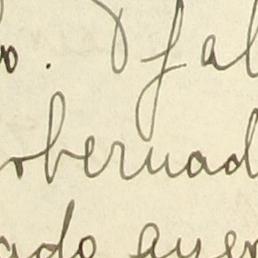 o. fal
obernad
ado ayer